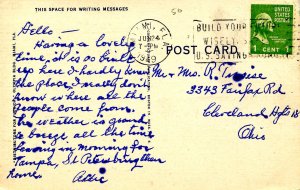 THIS SPACE FOR WRITING MESSAGES
Hello-
Having a lovely
time, it is so built
up here I hardly knew
the place, I really don't
know where all the
people come from.
The weather is grand
a breeze all the time
leaving in morning for
Tampa, St Petersburg then
home.
MIAMI, FLA.
JUN
1949
BUILD YOUR
U.S. SAVINGS
UNITED STATES
POSTAGE
1 CENT 1
POST CARD
Mr. Mrs. R.
3343 Fairfax Rd
Cleveland Hgts 18
Ohio